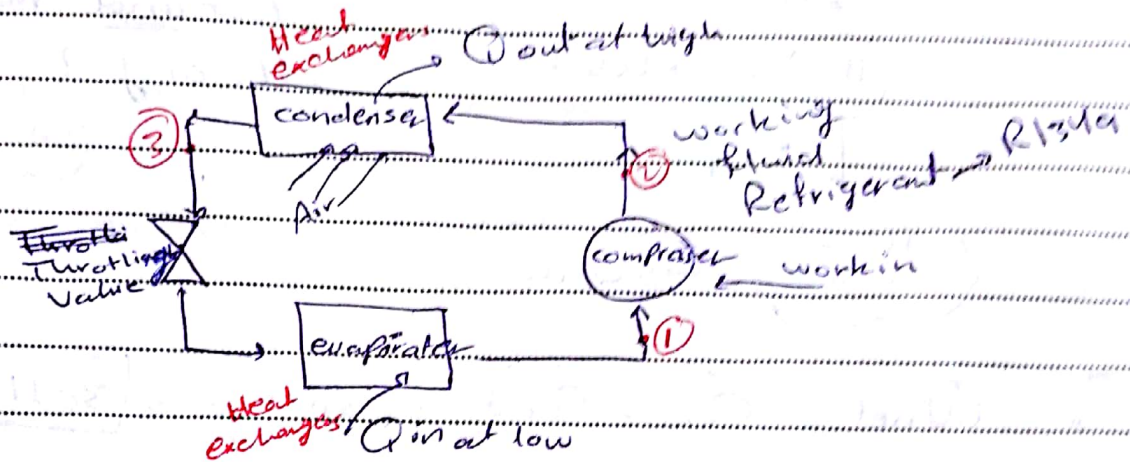 Heat
exchangers
Q out at high
condenser
3
working
fluid
Refrigerant → R134a
2
Air
Throttling
Value
compraser
work in
1
evaporater
Heat
exchanges
Q in at low